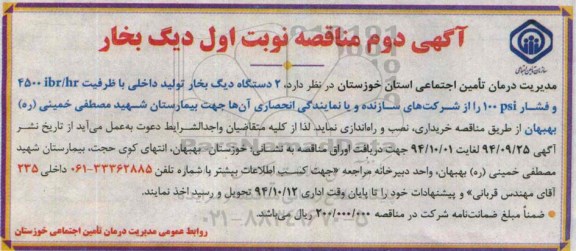 آگهی دوم مناقصه نوبت اول دیگ بخار
سازمان تأمین اجتماعی
مدیریت درمان تأمین اجتماعی استان خوزستان در نظر دارد، ۲ دستگاه دیگ بخار تولید داخلی با ظرفیت ۴۵۰۰ ibr/hr
و فشار ۱۰۰ psi را از شرکت‌های سازنده و یا نمایندگی انحصاری آن‌ها جهت بیمارستان شهید مصطفی خمینی (ره)
بهبهان از طریق مناقصه خریداری، نصب و راه‌اندازی نماید. لذا از کلیه متقاضیان واجدالشرایط دعوت به‌عمل می‌آید از تاریخ نشر
آگهی ۹۴/۰۹/۲۵ لغایت ۹۴/۱۰/۰۱ جهت دریافت اوراق مناقصه به نشانی خوزستان - بهبهان، انتهای کوی حجت، بیمارستان شهید
مصطفی خمینی (ره) بهبهان، واحد دبیرخانه مراجعه «جهت کسب اطلاعات بیشتر با شماره تلفن ۳۳۳۶۲۸۸۵-۰۶۱ داخلی ۲۳۵
آقای مهندس قربانی» و پیشنهادات خود را تا پایان وقت اداری ۹۴/۱۰/۱۲ تحویل و رسید اخذ نمایند.
• ضمناً مبلغ ضمانت‌نامه شرکت در مناقصه ۲۰۰/۰۰۰/۰۰۰ ریال می‌باشد.
روابط عمومی مدیریت درمان تأمین اجتماعی خوزستان